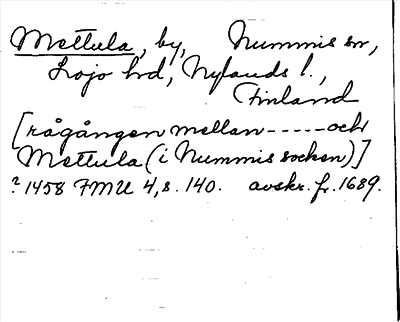 Mettula, by, Nummis sn,
Lojo hd, Nylands l.,
Finland
[rågången mellan-----och
Mettula (i Nummis socken)]
? 1458 FMU 4, s. 140. avskr. fr. 1689.